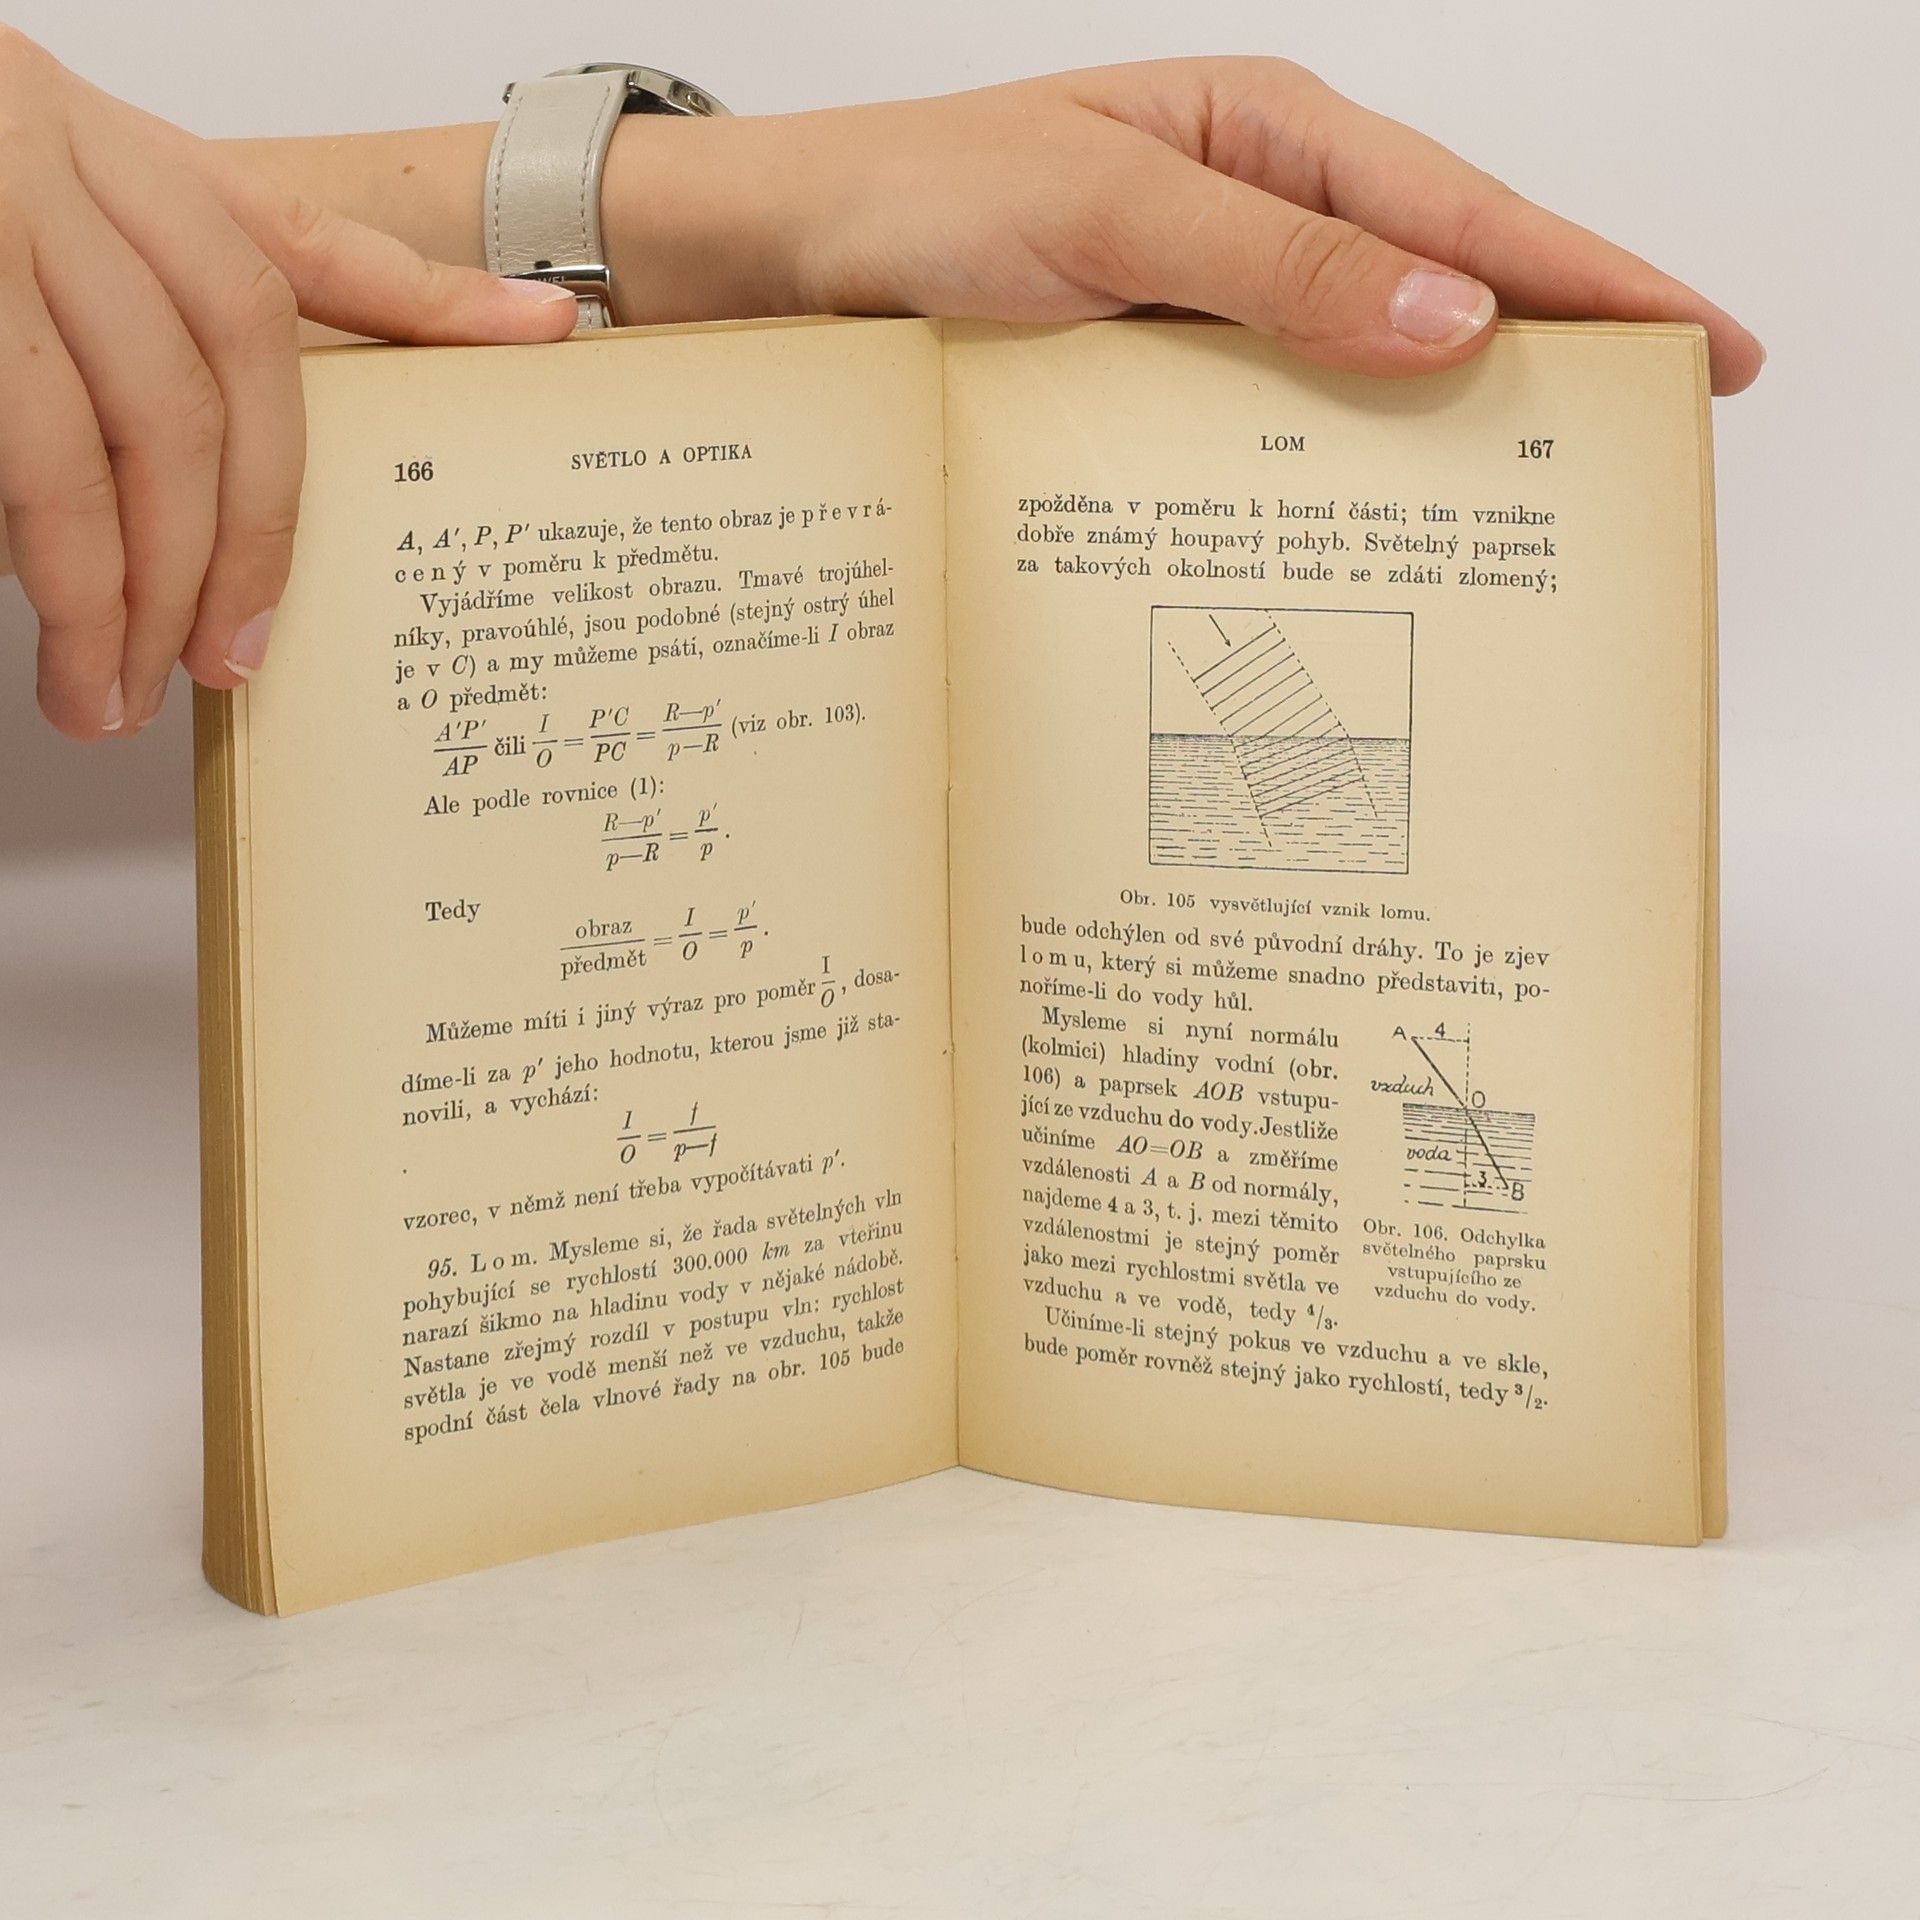 166 SVĚTLO A OPTIKA
A, A′, P, P′ ukazuje, že tento obraz je převrá-
cený v poměru k předmětu.
Vyjádříme velikost obrazu. Tmavé trojúhel-
níky, pravoúhlé, jsou podobné (stejný ostrý úhel
je v C) a my můžeme psáti, označíme-li I obraz
a O předmět:
A′P′/AP čili I/O = P′C/PC = R—p′/p—R (viz obr. 103).
Ale podle rovnice (1):
R—p′/p—R = p′/p.
Tedy
obraz/předmět = I/O = p′/p.
Můžeme míti i jiný výraz pro poměr I/O, dosa-
díme-li za p′ jeho hodnotu, kterou jsme již sta-
novili, a vychází:
I/O = f/p—f
vzorec, v němž není třeba vypočítávati p′.
95. Lom. Mysleme si, že řada světelných vln
pohybující se rychlostí 300.000 km za vteřinu
narazí šikmo na hladinu vody v nějaké nádobě.
Nastane zřejmý rozdíl v postupu vln: rychlost
světla je ve vodě menší než ve vzduchu, takže
spodní část čela vlnové řady na obr. 105 bude
LOM 167
zpožděna v poměru k horní části; tím vznikne
dobře známý houpavý pohyb. Světelný paprsek
za takových okolností bude se zdáti zlomený;
Obr. 105 vysvětlující vznik lomu.
bude odchýlen od své původní dráhy. To je zjev
lomu, který si můžeme snadno představiti, po-
noříme-li do vody hůl.
Mysleme si nyní normálu
(kolmici) hladiny vodní (obr.
106) a paprsek AOB vstupu-
jící ze vzduchu do vody. Jestliže
učiníme AO=OB a změříme
vzdálenosti A a B od normály,
najdeme 4 a 3, t. j. mezi těmito
vzdálenostmi je stejný poměr
jako mezi rychlostmi světla ve
vzduchu a ve vodě, tedy 4/3.
A 4
vzduch
O
voda
3 B
Obr. 106. Odchylka
světelného paprsku
vstupujícího ze
vzduchu do vody.
Učiníme-li stejný pokus ve vzduchu a ve skle,
bude poměr rovněž stejný jako rychlostí, tedy 3/2.